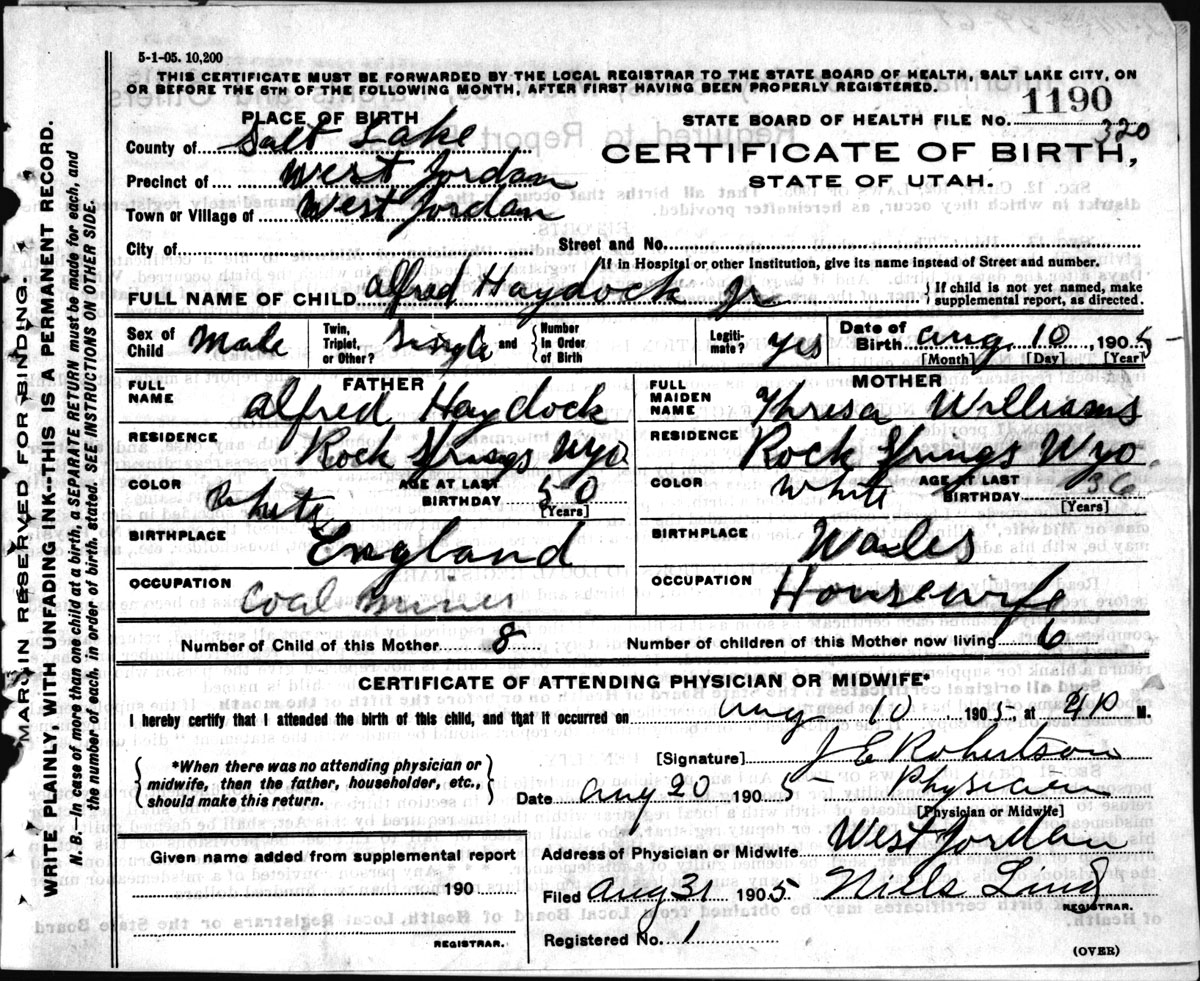 5-1-05. 10,200
THIS CERTIFICATE MUST BE FORWARDED BY THE LOCAL REGISTRAR TO THE STATE BOARD OF HEALTH, SALT LAKE CITY, ON
OR BEFORE THE 5TH OF THE FOLLOWING MONTH, AFTER FIRST HAVING BEEN PROPERLY REGISTERED.
PLACE OF BIRTH
STATE BOARD OF HEALTH FILE NO. 1190
320
County of Salt Lake
CERTIFICATE OF BIRTH,
Precinct of West Jordan
STATE OF UTAH.
Town or Village of West Jordan
City of Street and No.
[If in Hospital or other Institution, give its name instead of Street and number.
FULL NAME OF CHILD Alfred Haydock Jr { If child is not yet named, make supplemental report, as directed.
Sex of Child Male Twin, Triplet, or Other? Single and { Number In Order of Birth Legiti-mate? yes Date of Birth Aug 10, 1905
[Month] [Day] [Year]
FATHER
FULL NAME Alfred Haydock
MOTHER
FULL MAIDEN NAME Thresa Williams
RESIDENCE Rock Springs Wyo
RESIDENCE Rock Springs Wyo.
COLOR White AGE AT LAST BIRTHDAY 50 [Years]
COLOR White AGE AT LAST BIRTHDAY 36 [Years]
BIRTHPLACE England
BIRTHPLACE Wales
OCCUPATION Coal Miner
OCCUPATION Housewife
Number of Child of this Mother 8 Number of children of this Mother now living 6
CERTIFICATE OF ATTENDING PHYSICIAN OR MIDWIFE*
I hereby certify that I attended the birth of this child, and that it occurred on Aug 10, 1905, at M.
[Signature] J E Robertson
{ *When there was no attending physician or midwife, then the father, householder, etc., should make this return. }
Date Aug 20 1905 Physician
[Physician or Midwife]
Given name added from supplemental report
190
REGISTRAR.
Address of Physician or Midwife West Jordan
Filed Aug 31 1905 Niels Lind
REGISTRAR.
Registered No. 1
(OVER)
MARGIN RESERVED FOR BINDING.
WRITE PLAINLY, WITH UNFADING INK--THIS IS A PERMANENT RECORD.
N. B.—In case of more than one child at a birth, a SEPARATE RETURN must be made for each, and
the number of each, in order of birth, stated. SEE INSTRUCTIONS ON OTHER SIDE.